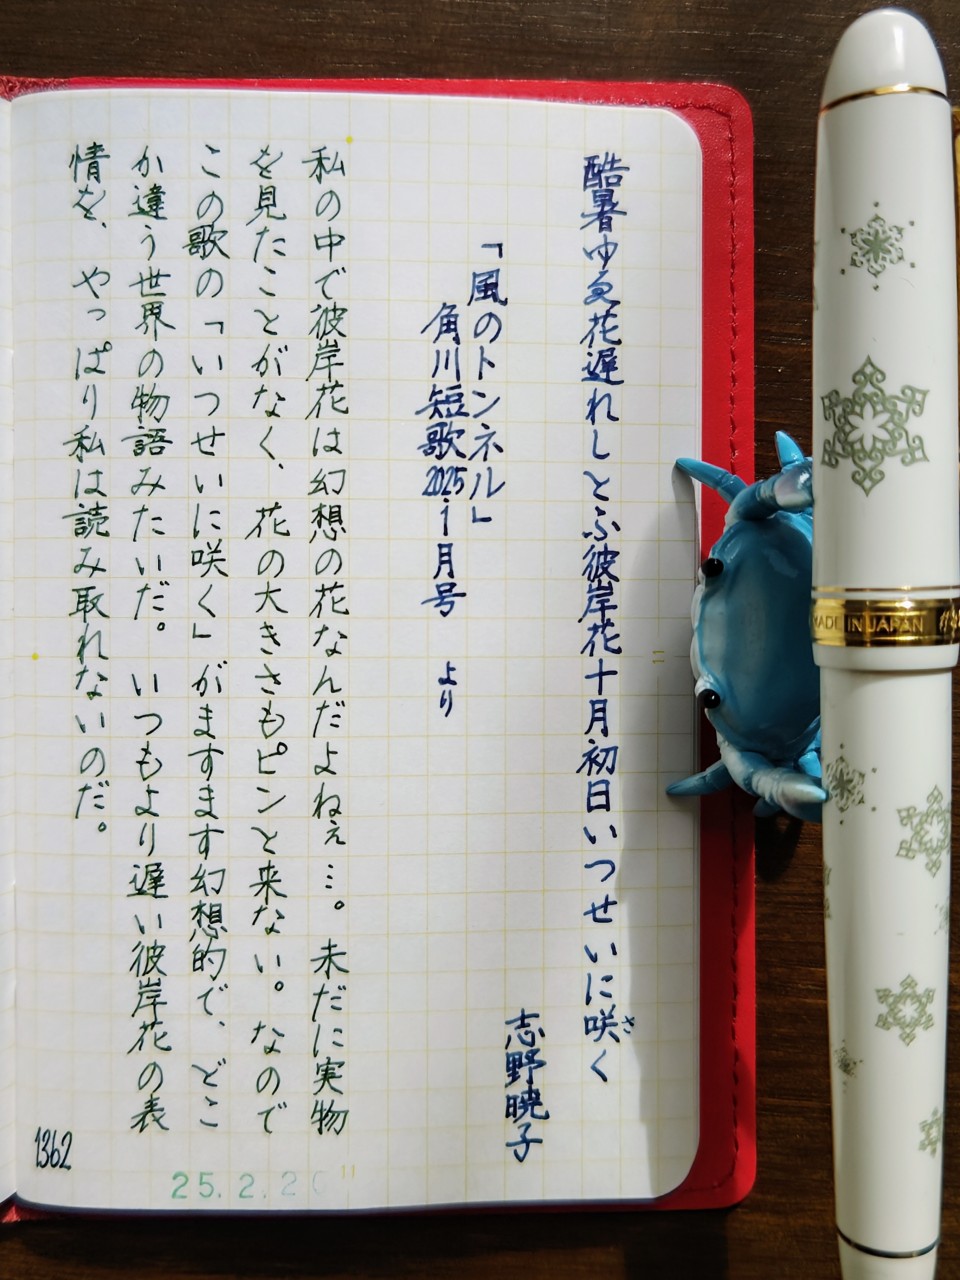 酷暑ゆゑ花遅れしとふ彼岸花十月初日いつせいに咲く
さ
志野暁子
「風のトンネル」
角川短歌2025年1月号 より
私の中で彼岸花は幻想の花なんだよねぇ…。未だに実物
を見たことがなく、花の大きさもピンと来ない。なので
この歌の「いつせいに咲く」がますます幻想的で、どこ
か違う世界の物語みたいだ。いつもより遅い彼岸花の表
情を、やっぱり私は読み取れないのだ。
1362
25.2.2
MADE IN JAPAN